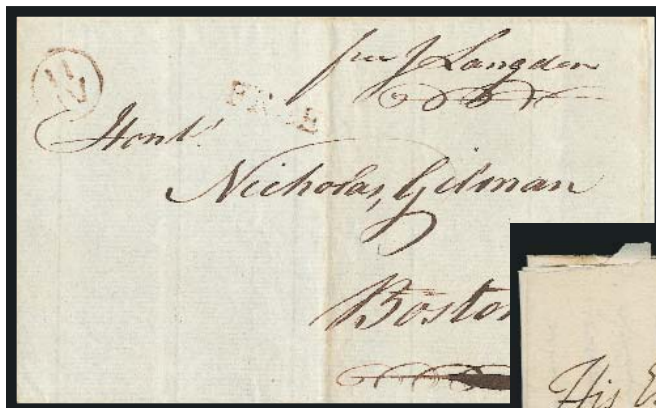 free J Langdon
FREE
Honble
Nicholas Gilman
Bosto
His E